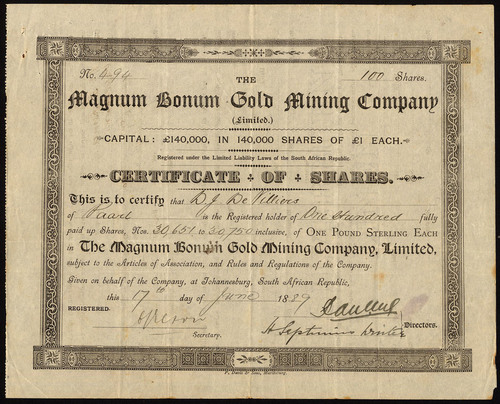 No. 494
100 Shares.
THE
Magnum Bonum Gold Mining Company
(Limited.)
CAPITAL: £140,000, IN 140,000 SHARES OF £1 EACH.
Registered under the Limited Liability Laws of the South African Republic.
CERTIFICATE OF SHARES.
This is to certify that D J De Villiers
of Paarl is the Registered holder of One Hundred fully
paid up Shares, Nos. 30,651 to 30,750 inclusive, of ONE POUND STERLING Each
in The Magnum Bonum Gold Mining Company, Limited,
subject to the Articles of Association, and Rules and Regulations of the Company.
Given on behalf of the Company, at Johannesburg, South African Republic,
this 17th day of June 1889
REGISTERED.
Directors.
A Septimus
Secretary.
P. Davis & Sons, Maritzburg.